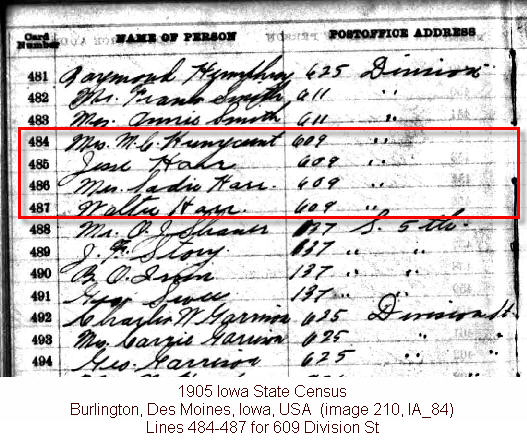 Card Number NAME OF PERSON POSTOFFICE ADDRESS
481 Raymond Humphrey 625 Division
482 Mr. Frank Smith 611 "
483 Mrs. Annie Smith 611 "
484 Mrs. M. C. 609 "
485 Jesse Harr 609 "
486 Mrs. Sadie Harr. 609 "
487 Walter Harr. 609 "
488 Mr. O. J. 837 S. 5th.
489 J. F. Story. 837 " "
490 B. O. 137 " "
491 Geo. 137 " "
492 Charles W Garrison 625 Division St.
493 Mrs. Carrie Garrison 625 " "
494 Geo. Garrison 625 " "
1905 Iowa State Census
Burlington, Des Moines, Iowa, USA (image 210, IA_84)
Lines 484-487 for 609 Division St